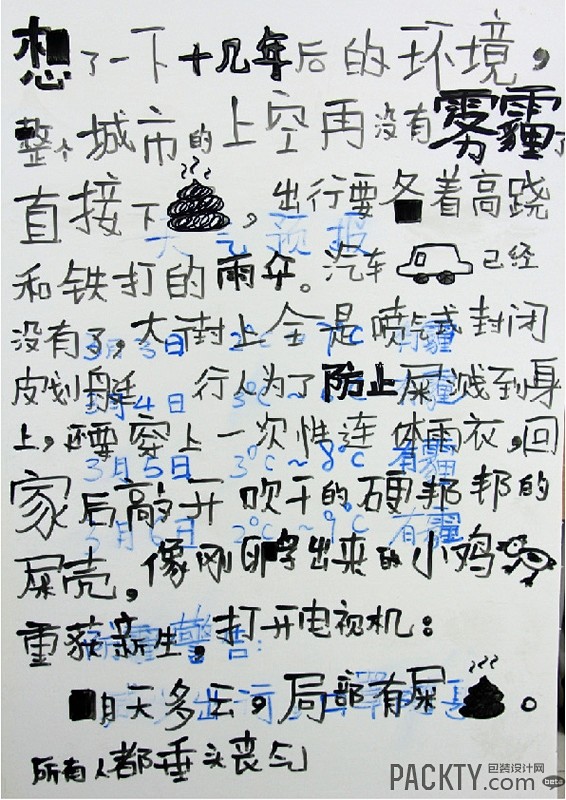 想了一下十几年后的环境，
整个城市的上空再没有雾霾了
直接下，出行要备着高跷
和铁打的雨伞。汽车已经
没有了，大街上全是喷气式封闭
皮划艇 行人为了防止屎溅到身
上，还要穿上一次性连体雨衣，回
家后敲开吹干的硬邦邦的
屎壳，像刚卵字出来的小鸡
重获新生。打开电视机：
明天多云，局部有屎。
所有人都垂头丧气
天气预报
3月3日 2℃~7℃ 有霾
3月4日 3℃~ 有霾
3月5日 3℃~8℃ 有霾
3月6日 2℃~9℃ 有霾
PACKTY.com 包装设计网 beta